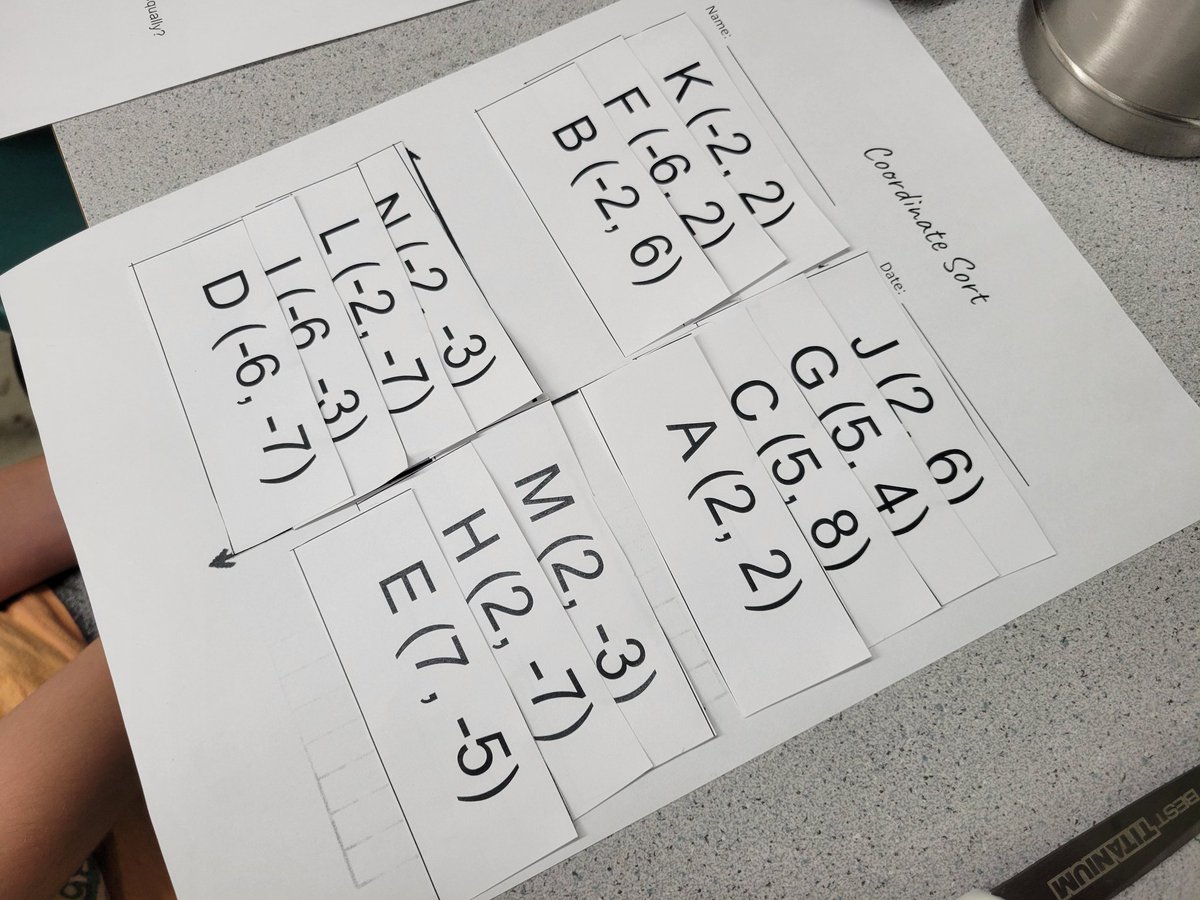 qually?
Name:
Date:
Coordinate Sort
K (-2, 2)
F (-6, 2)
B (-2, 6)
J (2, 6)
G (5, 4)
C (5, 8)
A (2, 2)
N (-2, -3)
L (-2, -7)
I (-6, -3)
D (-6, -7)
M (2, -3)
H (2, -7)
E (7, -5)
BEST TITANIUM